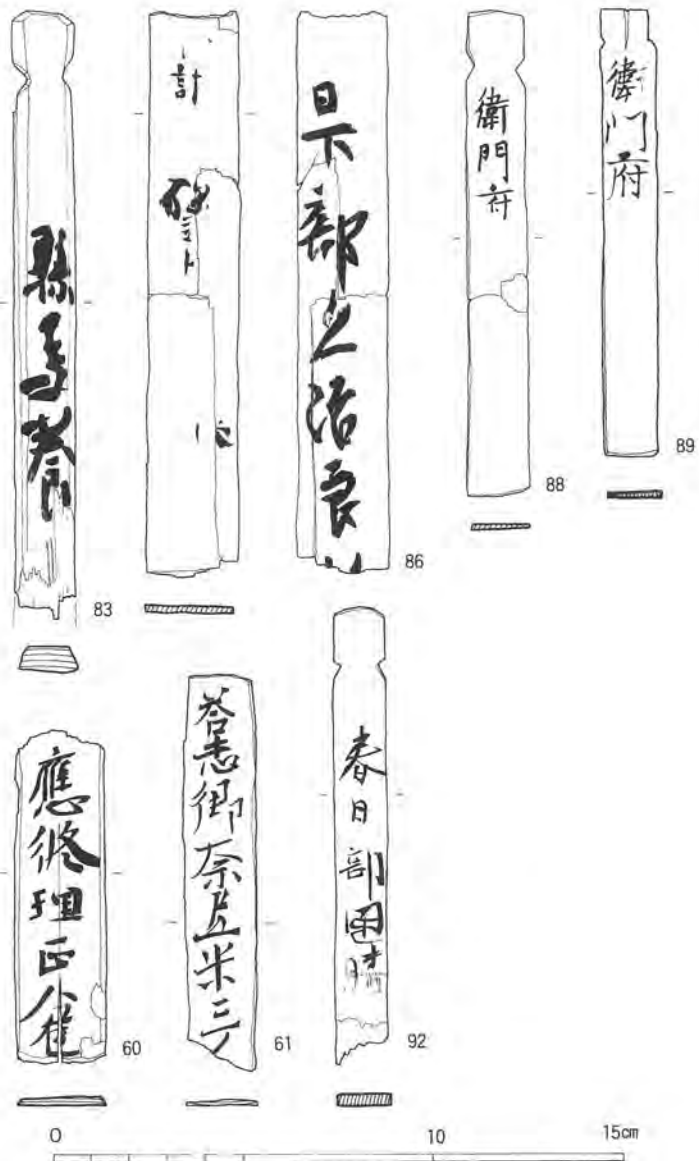 縣馬養
83
計
日下部止治良
86
衛門府
88
衛門府
89
應修理正
60
御奈且米三
61
春日部國
92
0 10 15㎝